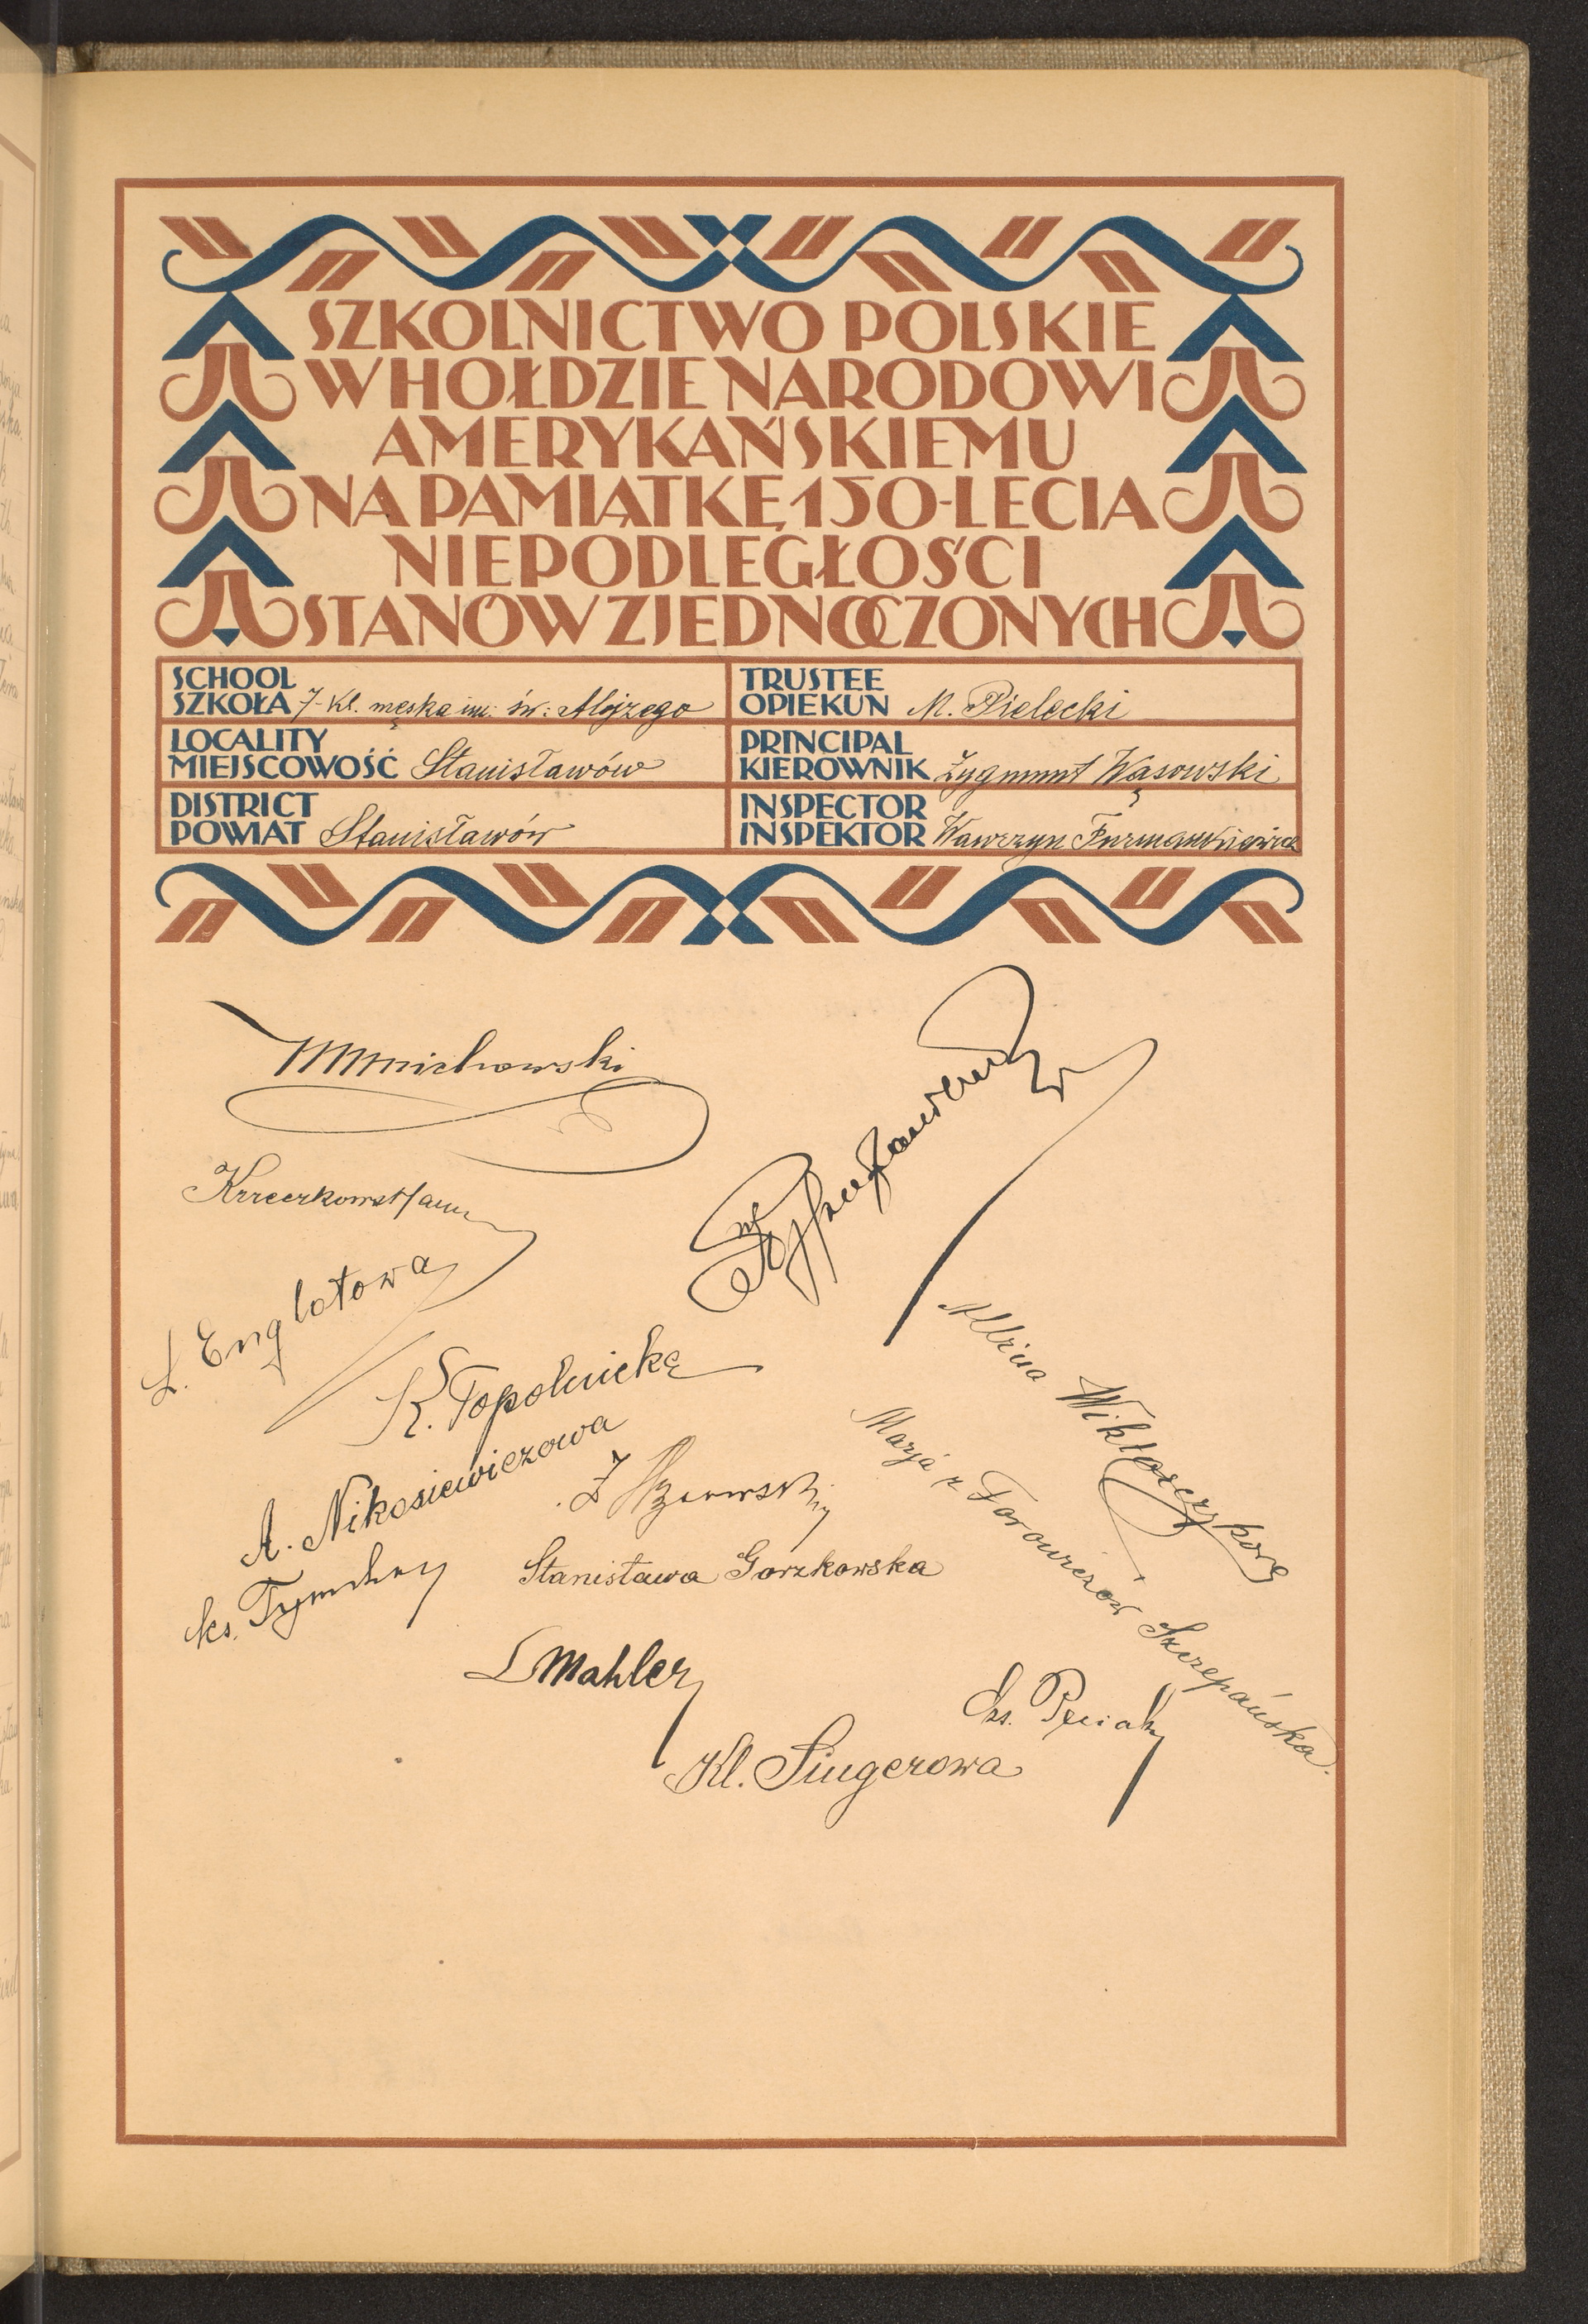 SZKOLNICTWO POLSKIE
W HOŁDZIE NARODOWI
AMERYKAŃSKIEMU
NA PAMIĄTKĘ 150-LECIA
NIEPODLEGŁOŚCI
STANÓW ZJEDNOCZONYCH
SCHOOL
SZKOŁA 7-kl. męska im: św: Alojzego
TRUSTEE
OPIEKUN M. Pielecki
LOCALITY
MIEJSCOWOŚĆ Stanisławów
PRINCIPAL
KIEROWNIK Zygmunt Wąsowski
DISTRICT
POWIAT Stanisławów
INSPECTOR
INSPEKTOR Wawrzyn Furmankiewicz
MMnichowski
L. Englotowa
K. Topolnicka
A. Nikosiewiczowa
Marja z Torowiczów Szczepańska.
ks.
Stanisława Gorzkowska
L Mahler
Kl. Singerowa